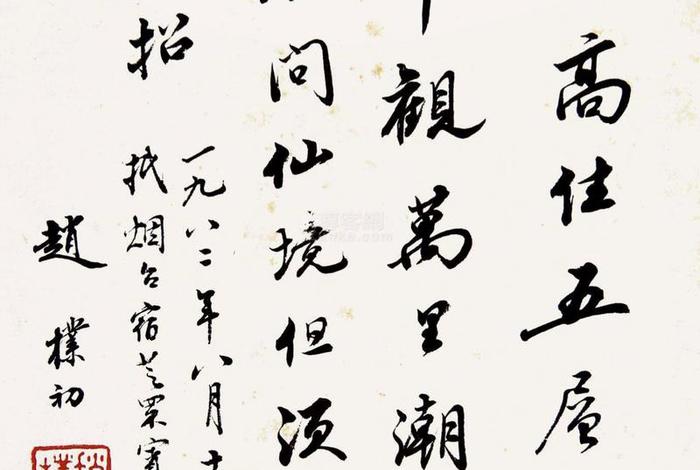 高住五層
觀萬里潮
問仙境但須
招
一九八二年八月十
抵烟台宿芝罘賓
趙樸初